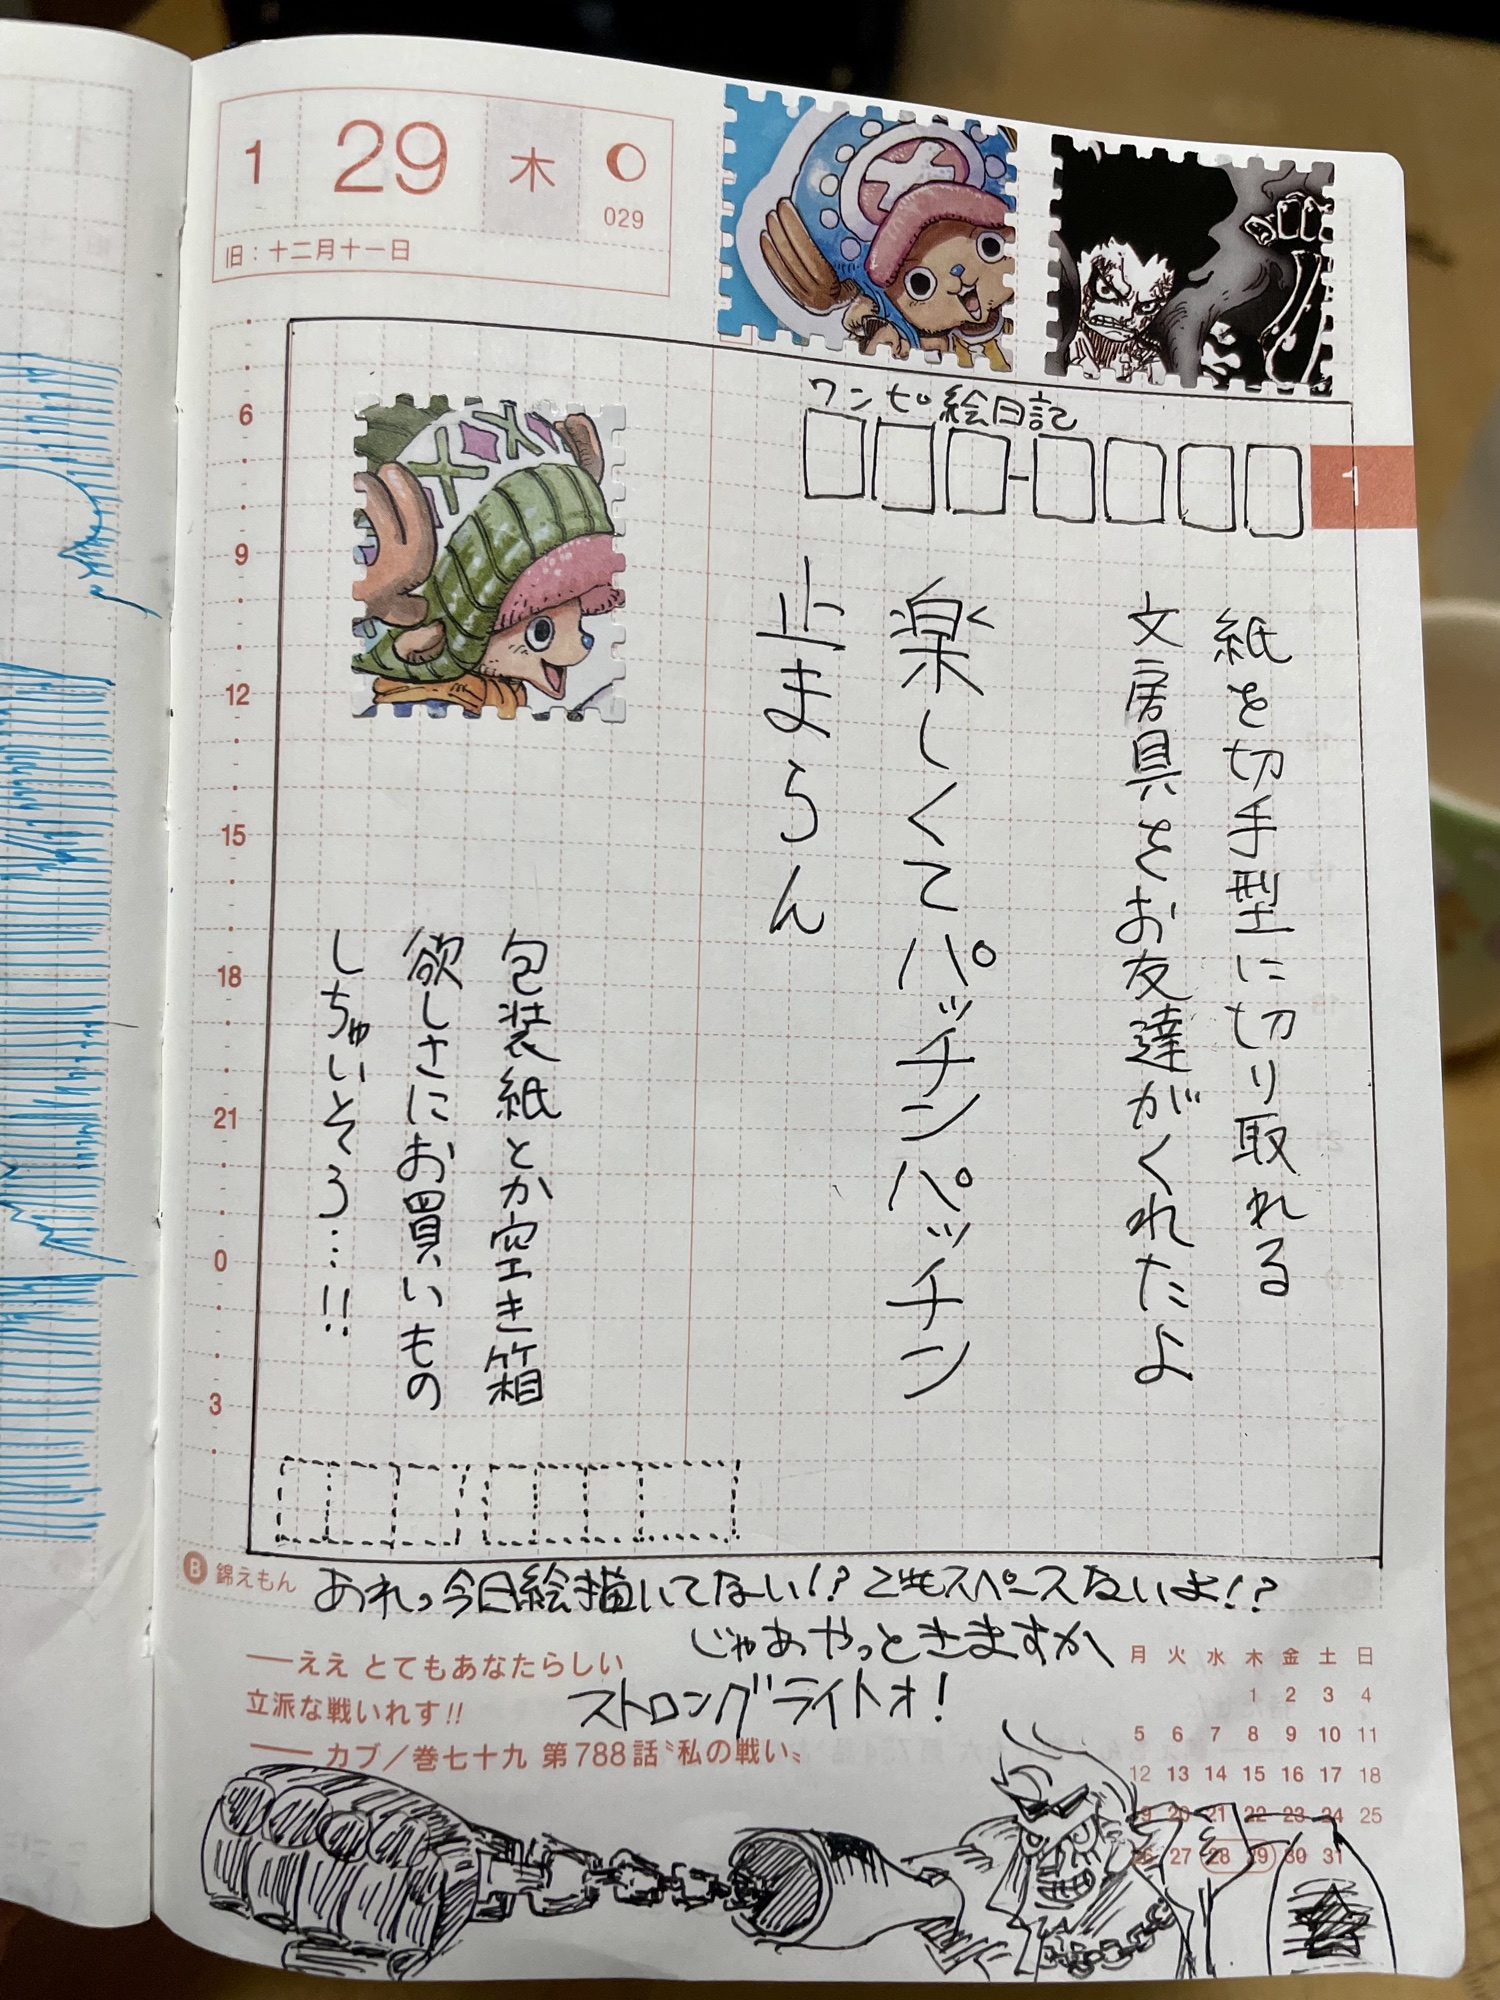 1 29 木
029
旧：十二月十一日
ワンピ絵日記
1
紙を切手型に切り取れる
文房具をお友達がくれたよ
楽しくてパッチンパッチン
止まらん
包装紙とか空き箱
欲しさにお買いもの
しちゃいそう…!!
6
9
12
15
18
21
0
3
B 錦えもん
あれっ今日絵描いてない!? でもスペースないよ!?
じゃあやっときますか
ストロングライトォ!
──ええ とてもあなたらしい
立派な戦いれす!!
── カブ／巻七十九 第788話〝私の戦い〟
月 火 水 木 金 土 日
1 2 3 4
5 6 7 8 9 10 11
12 13 14 15 16 17 18
19 20 21 22 23 24 25
26 27 28 29 30 31